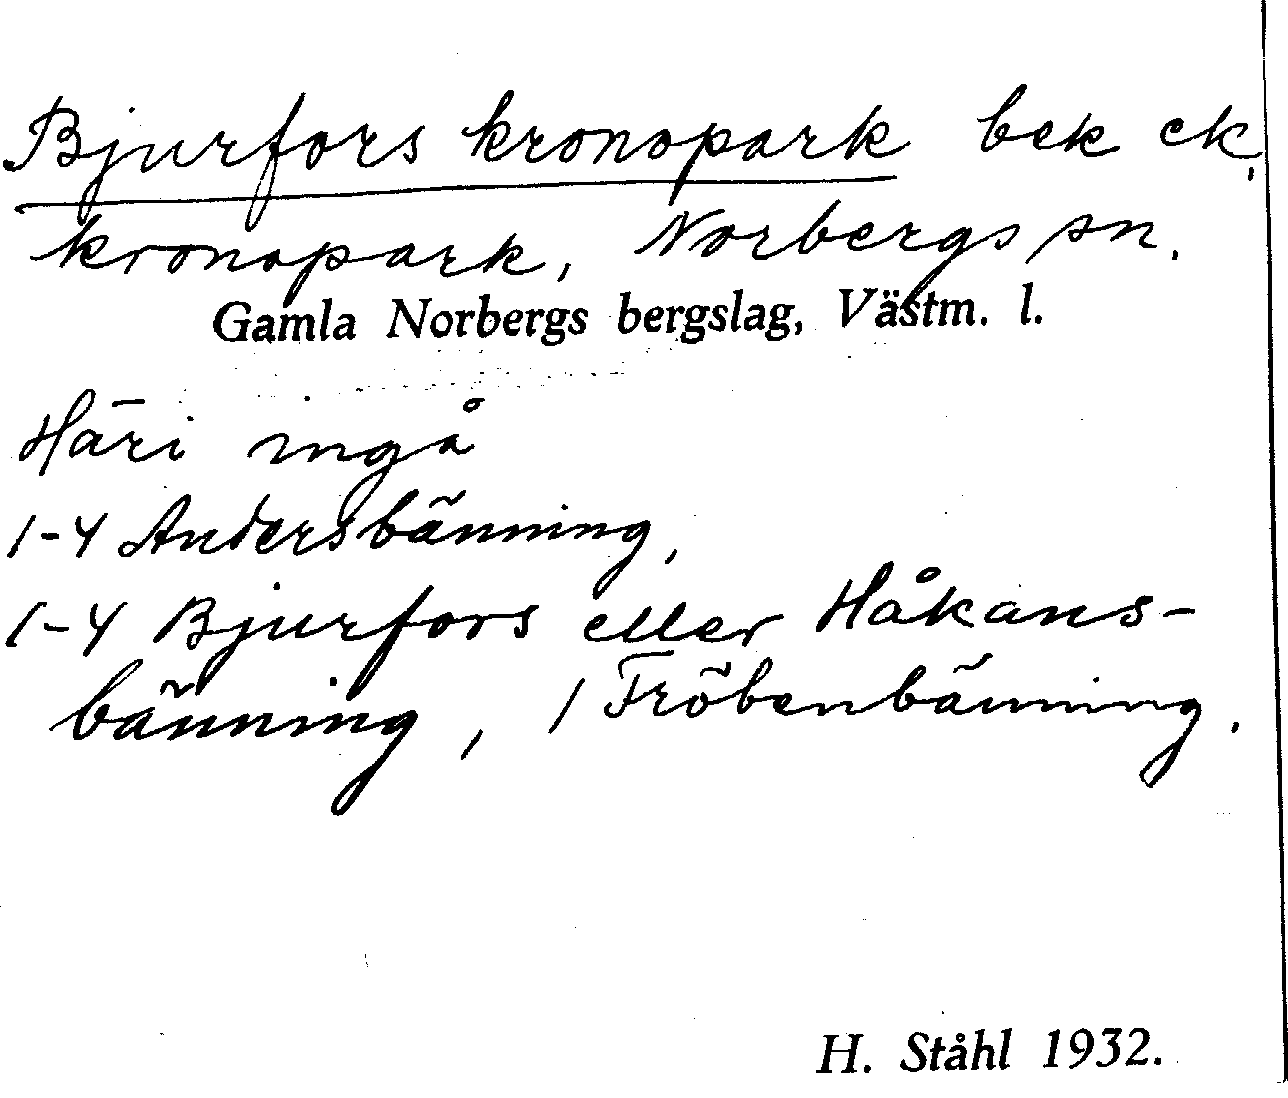 Bjurfors kronopark bek ck,
kronopark, Norbergs sn.
Gamla Norbergs bergslag, Västm. l.
Häri ingå
1-4 Andersbänning,
1-4 Bjurfors eller Håkans-
bänning, 1 Fröbenbänning.
H. Ståhl 1932.